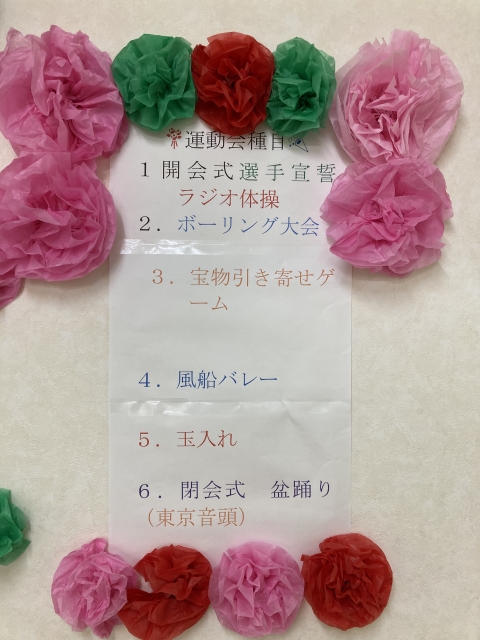 運動会種目
1 開会式選手宣誓
ラジオ体操
2．ボーリング大会
3．宝物引き寄せゲ
ーム
4．風船バレー
5．玉入れ
6．閉会式　盆踊り
（東京音頭）